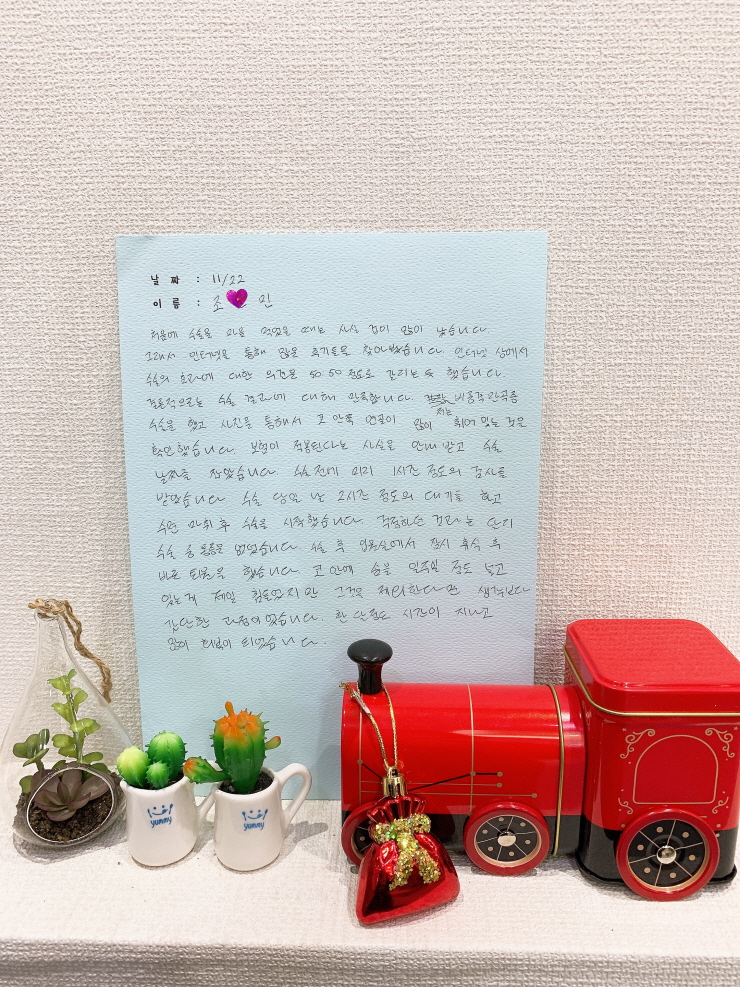 날 짜 : 11/22
이 름 : 조 민
처음에 수술을 마음 먹었을 때는 사실 겁이 많이 났습니다.
그래서 인터넷을 통해 많은 후기들을 찾아보았습니다. 인터넷 상에서
수술의 효과에 대한 의견은 50 50 정도로 갈리는 듯 했습니다.
결론적으로는 수술 결과에 대해 만족합니다. 비중격만곡증
수술을 했고 사진을 통해서 코 안쪽 연골이 저는 많이 휘어 있는 것을
확인했습니다. 보험이 적용된다는 사실을 안내 받고 수술
날짜를 잡았습니다. 수술 전에 미리 1시간 정도의 검사를
받았습니다. 수술 당일 날 2시간 정도의 대기를 하고
수면 마취 후 수술을 시작했습니다. 걱정하던 것과는 달리
수술 중 통증은 없었습니다. 수술 후 입원실에서 잠시 휴식 후
바로 퇴원을 했습니다. 코 안에 솜을 일주일 정도 넣고
있는게 제일 힘들었지만 그것을 제외한다면 생각보다
간단한 과정이었습니다. 한 달 정도 시간이 지나고
많이 회복이 되었습니다.
yummy
yummy